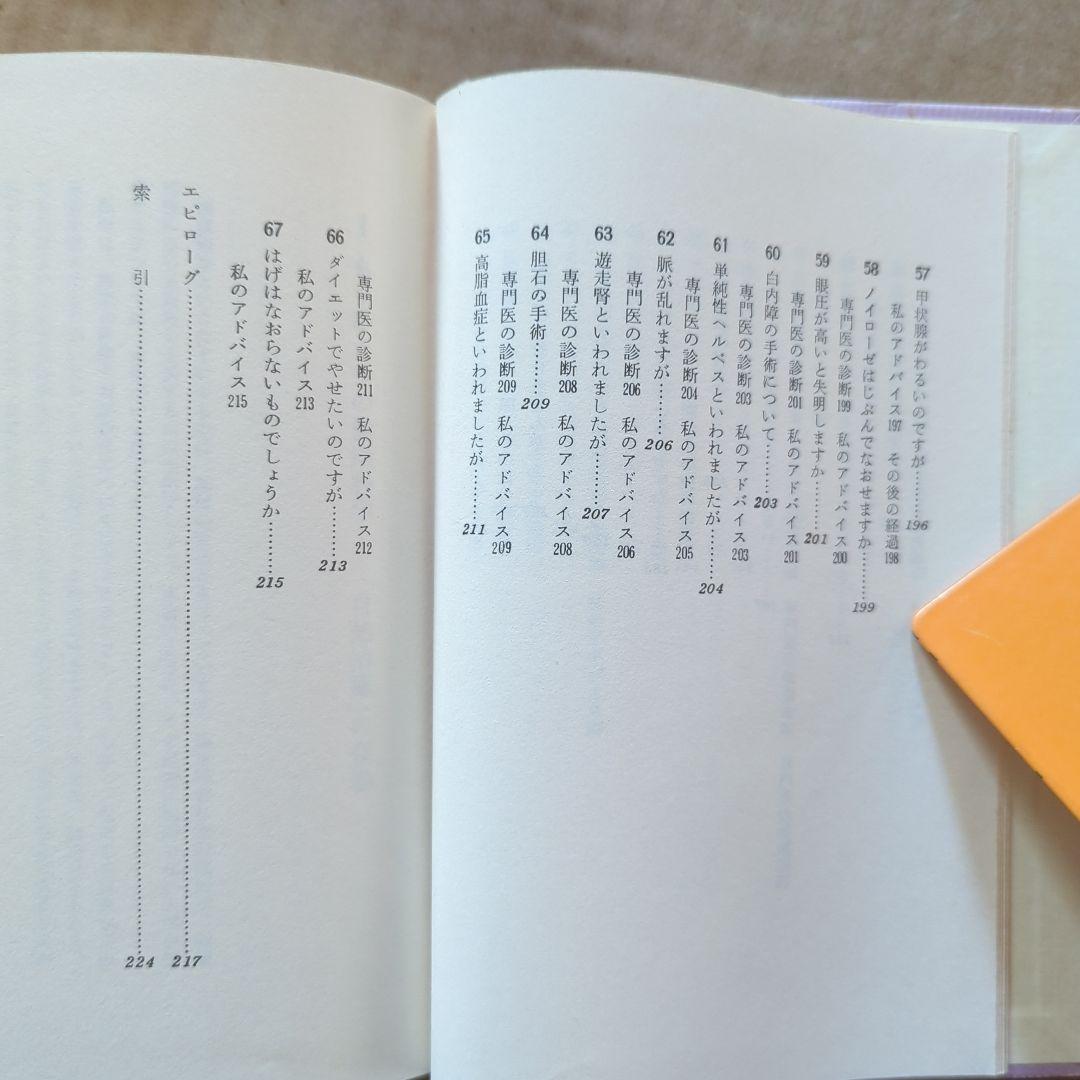 57 甲状腺がわるいのですが………196
私のアドバイス197 その後の経過198
58 ノイローゼはじぶんでなおせますか………199
専門医の診断199 私のアドバイス200
59 眼圧が高いと失明しますか………201
専門医の診断201 私のアドバイス201
60 白内障の手術について………203
専門医の診断203 私のアドバイス203
61 単純性ヘルペスといわれましたが………204
専門医の診断204 私のアドバイス205
62 脈が乱れますが………206
専門医の診断206 私のアドバイス206
63 遊走腎といわれましたが………207
専門医の診断208 私のアドバイス208
64 胆石の手術………209
専門医の診断209 私のアドバイス209
65 高脂血症といわれましたが………211
専門医の診断211 私のアドバイス212
66 ダイエットでやせたいのですが………213
私のアドバイス213
67 はげはなおらないものでしょうか………215
私のアドバイス215
エピローグ………217
索引………224